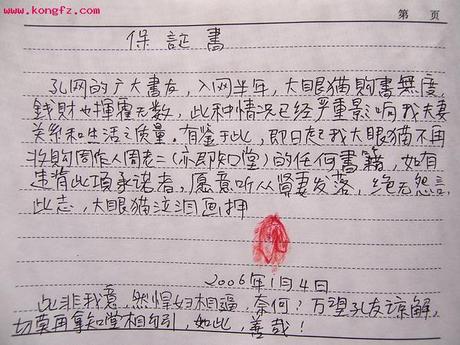 www.kongfz.com
第 页
保証書
孔网的广大書友，入网半年，大眼猫購書無度，
錢財也揮霍无数，此种情况已经严重影响我夫妻
关系和生活之质量。有鉴于此，即日起我大眼猫不再
收购周作人周老二(亦即知堂)的任何書籍，如有
违背此項承诺者，愿意听从賢妻发落，绝无怨言，
此志，大眼猫泣泪画押
2006年1月4日
此非我意，然悍妇相逼，奈何？万望孔友谅解，
切莫再拿知堂相勾引，如此，善哉！